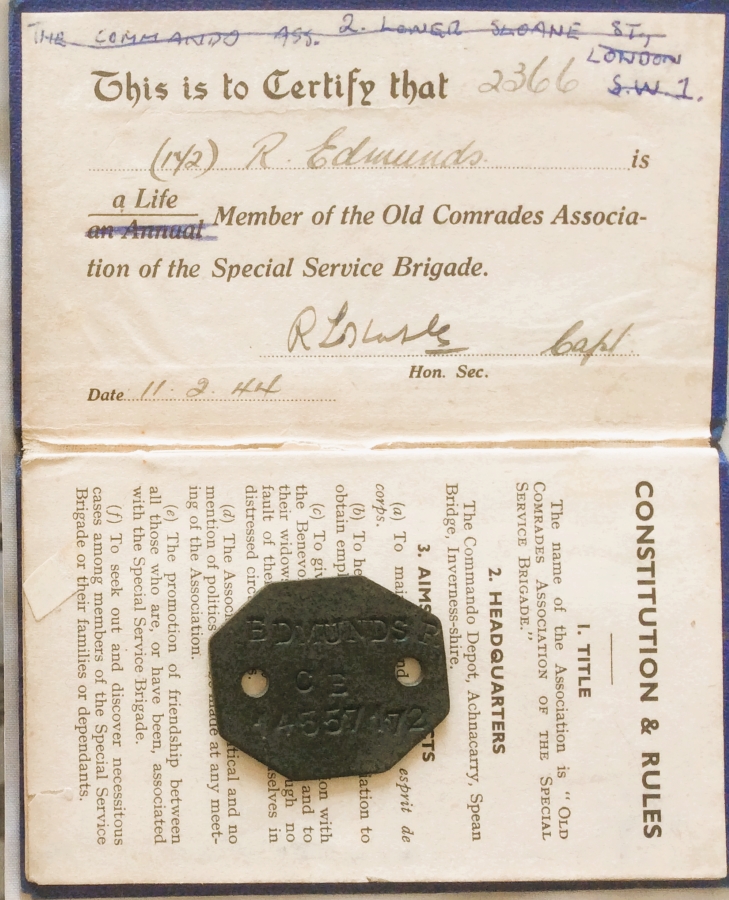 THE COMMANDO ASS. 2. LOWER SLOANE ST,
LONDON
S.W.1.
This is to Certify that 2366
(172) R. Edmunds is
a Life
an Annual Member of the Old Comrades Associa-
tion of the Special Service Brigade.
Capt
Hon. Sec.
Date 11. 2. 44
CONSTITUTION & RULES
1. TITLE
The name of the Association is "OLD
COMRADES ASSOCIATION OF THE SPECIAL
SERVICE BRIGADE."
2. HEADQUARTERS
The Commando Depot, Achnacarry, Spean
Bridge, Inverness-shire.
3. AIMS
(a) To esprit de
corps.
(b) To
obtain
(c) To on with
the and to
their no
fault of in
distressed
(d) The and no
mention of politics at any meet-
ing of the Association.
(e) The promotion of friendship between
all those who are, or have been, associated
with the Special Service Brigade.
(f) To seek out and discover necessitous
cases among members of the Special Service
Brigade or their families or dependants.
EDMUNDS R
CE
14557172